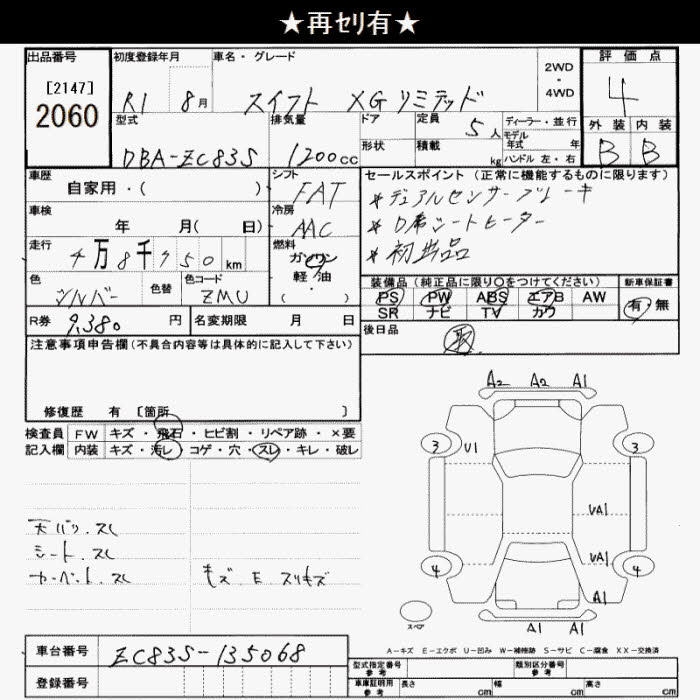 ★再ｾﾘ有★
出品番号
[2147]
2060
初度登録年月
R1 8月
車名・グレード
スイフト XGリミテッド
2WD
・
4WD
評価点
4
外装 内装
B B
型式
DBA-ZC83S
排気量
1200cc
ドア
形状
定員
5人
積載
kg
ディーラー・並行
モデル
年式 年
ハンドル 左・右
車歴
自家用・( )
シフト
FAT
車検
年 月( 日)
冷房
AAC
走行
4万8千750km
燃料
ガソリン
軽・油
・
( )
色
シルバー
色替
色コード
ZMU
R券
9,380円
名変期限 月 日
セールスポイント (正常に機能するものに限ります)
*デュアルセンサーブレーキ
*D席シートヒーター
*初出品
装備品(純正品に限り○をつけてください)
PS PW ABS エアB AW
SR ナビ TV カワ
新車保証書
有 無
後日品
取
注意事項申告欄(不具合内容等は具体的に記入して下さい)
修復歴 有 [箇所 ]
検査員 FW キズ・飛石・ヒビ割・リペア跡・×要
記入欄 内装 キズ・汚レ・コゲ・穴・スレ・キレ・破レ
天バリ.スレ
シート.スレ
カーペット.スレ
キズ E スリキズ
A2 A2 A1
3 U1 3
UA1
UA1
4 4
A1
スペア
A1 A1
A-キズ E-エクボ U-凹み W-補修跡 S-サビ C-腐食 XX-交換済
車台番号 ZC83S-135068
登録番号
型式指定番号
参考
類別区分番号
参考
車庫証明用
参考
長さ cm 幅 cm 高さ cm